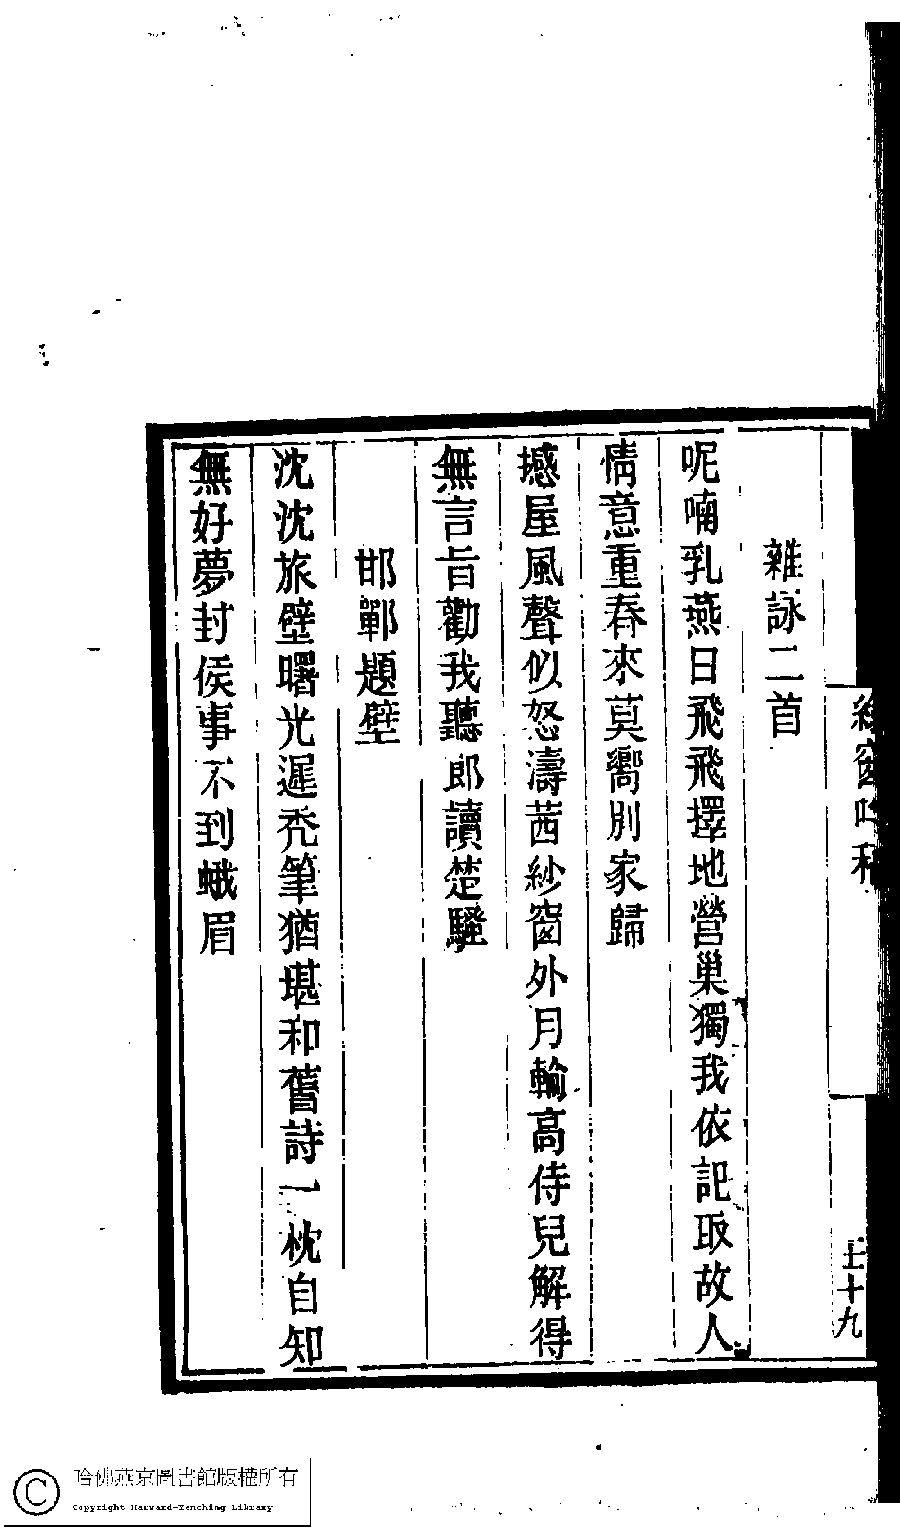 雜詠二首
呢喃乳燕日飛飛擇地營巢獨我依記取故人
情意重春來莫嚮別家歸
撼屋風聲似怒濤茜紗窗外月輪高侍兒解得
無言旨勸我聽郎讀楚騷
邯鄲題壁
沈沈旅壁曙光遲禿筆猶堪和舊詩一枕自知
無好夢封侯事不到蛾眉
哈佛燕京圖書館版權所有
Copyright Harvard-Yenching Library